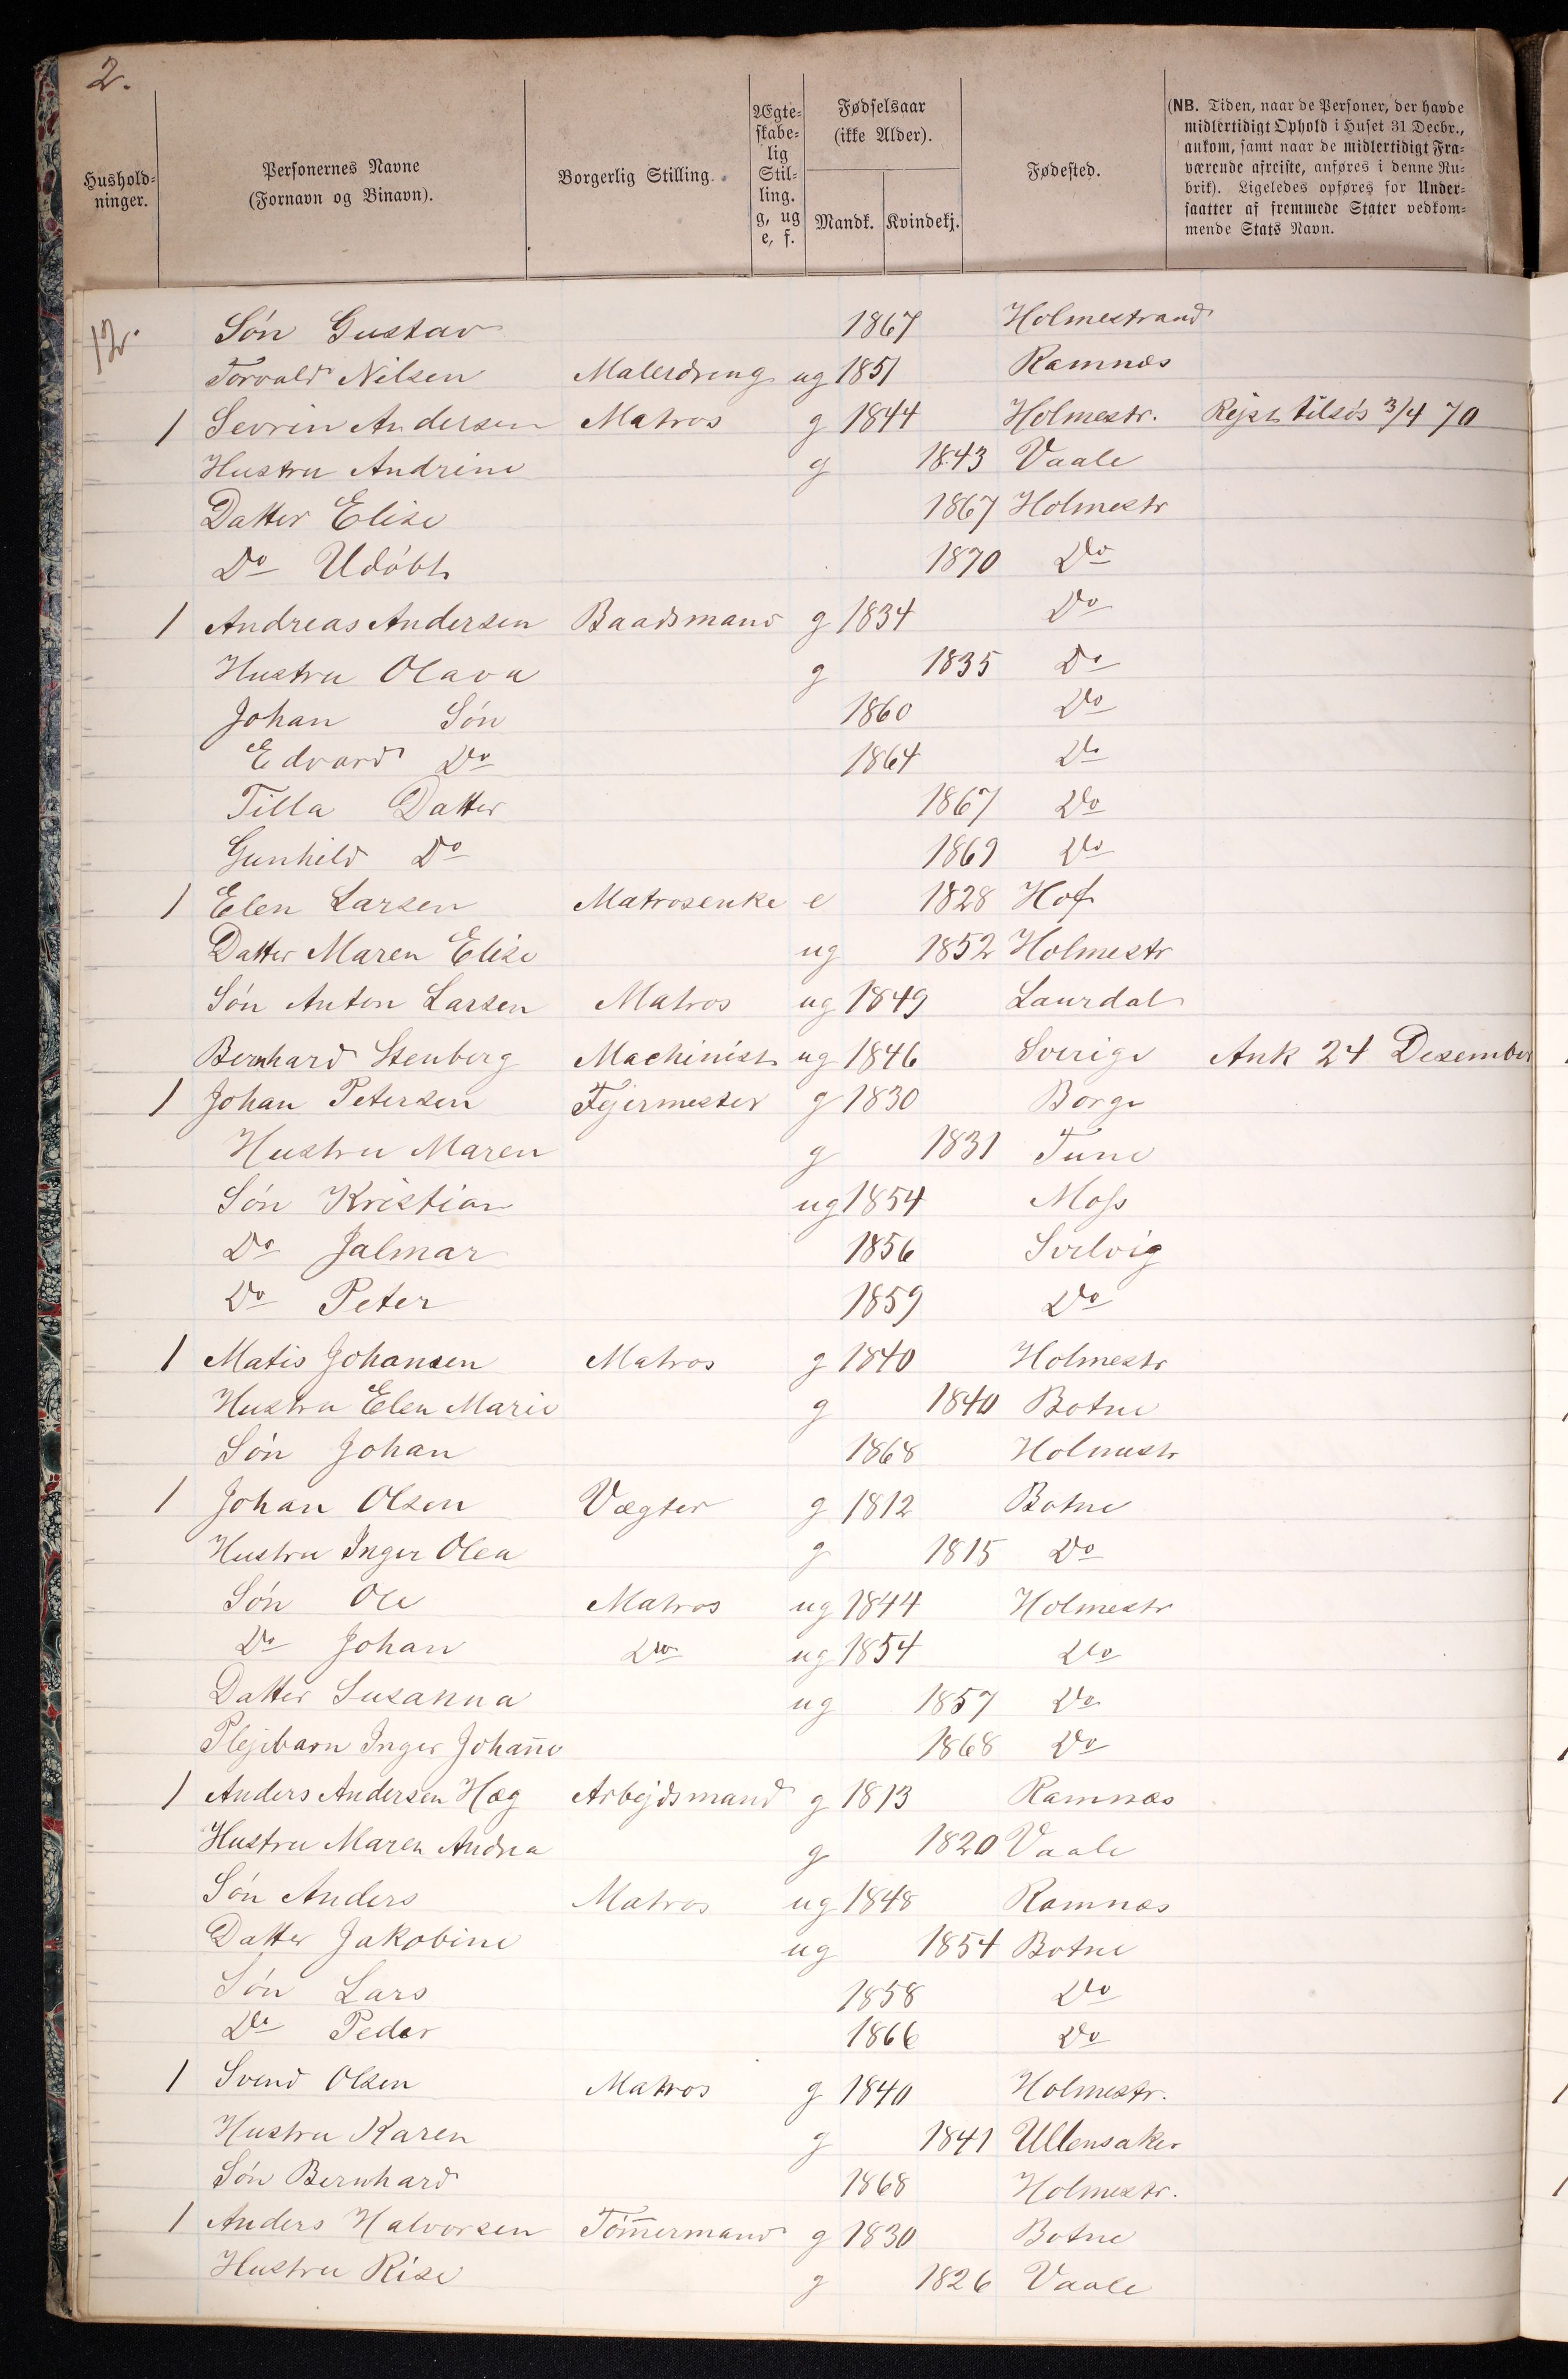 2.
Hushold-
ninger.
Personernes Navne
(Fornavn og Binavn).
Borgerlig Stilling.
Ægte-
skabe-
lig
Stil-
ling.
g, ug
e, f.
Fødselsaar
(ikke Alder).
Mandk. Kvindekj.
Fødested.
(NB. Tiden, naar de Personer, der havde
midlertidigt Ophold i Huset 31 Decbr.,
ankom, samt naar de midlertidigt Fra-
værende afreiste, anføres i denne Ru-
brik). Ligeledes opføres for Under-
saatter af fremmede Stater vedkom-
mende Stats Navn.
12. Søn Gustav 1867 Holmestrand
Torvald Nilsen Malerdreng ug 1851 Ramnæs
1 Sevrin Andersen Matros g 1844 Holmestr. Rejst tilsøs 3/4 70
Hustru Andrine g 1843 Vaale
Datter Elise 1867 Holmestr
Do Udøbt 1870 Do
1 Andreas Andersen Baadsmand g 1834 Do
Hustru Olava g 1835 Do
Johan Søn 1860 Do
Edvard Do 1864 Do
Tilla Datter 1867 Do
Gunhild Do 1869 Do
1 Elen Larsen Matrosenke e 1828 Hof
Datter Maren Elise ug 1852 Holmestr
Søn Anton Larsen Matros ug 1849 Laurdal
Bernhard Stenberg Machinist ug 1846 Sverige Ank 24 Desember
1 Johan Petersen Fejermester g 1830 Borge
Hustru Maren g 1831 Tune
Søn Kristian ug 1854 Moss
Do Jalmar 1856 Svelvig
Do Peter 1859 Do
1 Matis Johansen Matros g 1840 Holmestr
Hustru Elen Marie g 1840 Botne
Søn Johan 1868 Holmestr
1 Johan Olsen Vægter g 1812 Botne
Hustru Inger Olea g 1815 Do
Søn Ole Matros ug 1844 Holmestr
Do Johan Do ug 1854 Do
Datter Susanna ug 1857 Do
Plejebarn Inger Johan̄e 1868 Do
1 Anders Andersen Hæg Arbejdsmand g 1813 Ramnæs
Hustru Maren Andrea g 1820 Vaale
Søn Anders Matros ug 1848 Ramnæs
Datter Jakobine ug 1854 Botne
Søn Lars 1858 Do
Do Peder 1866 Do
1 Svend Olsen Matros g 1840 Holmestr.
Hustru Karen g 1841 Ullensaker
Søn Bernhard 1868 Holmestr.
1 Anders Halvorsen Tøm̄ermand g 1830 Botne
Hustru Rise g 1826 Vaale